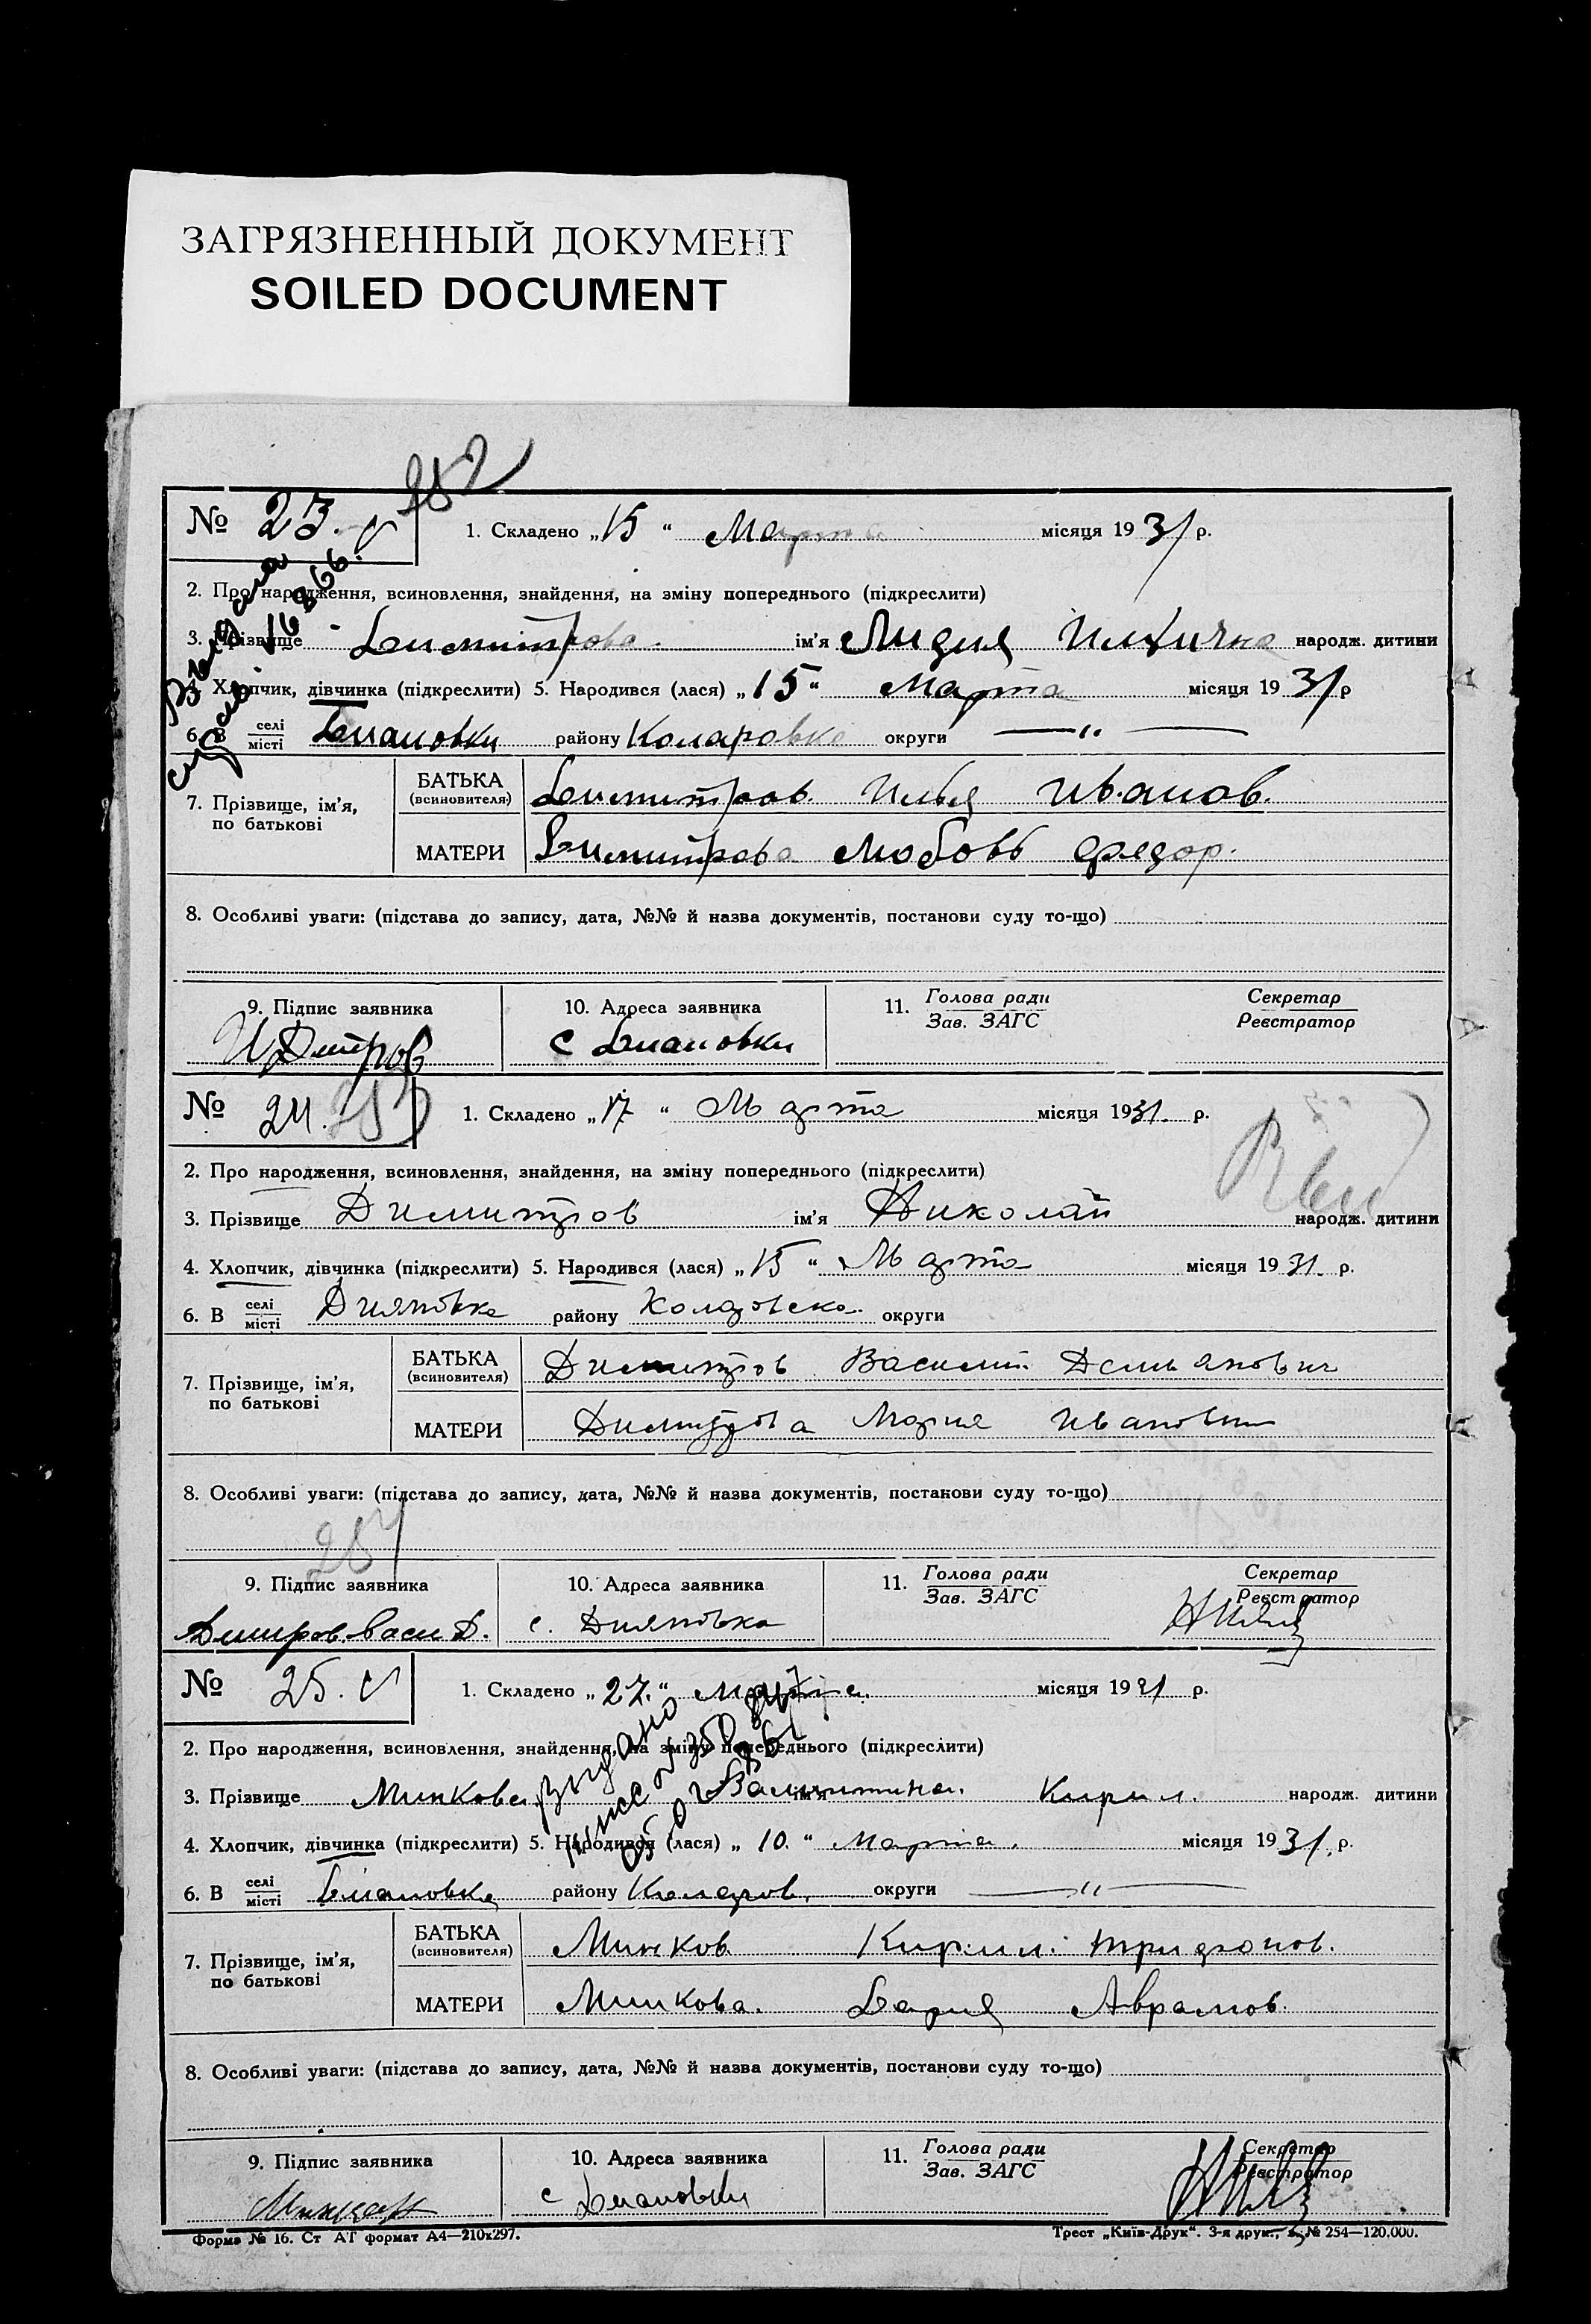 ЗАГРЯЗНЕННЫЙ ДОКУМЕНТ
SOILED DOCUMENT
252
№ 23. 1. Складено „15“ Марта місяця 1931 р.
2. Про народження, всиновлення, знайдення, на зміну попереднього (підкреслити)
3. Прізвище Димитрова. ім'я Лидия народж. дитини
4. Хлопчик, дівчинка (підкреслити) 5. Народився (лася) „15“ Марта місяця 1931 р
6. В селі/місті Диановки району Коларовка округи — „ —
7. Прізвище, ім'я, по батькові
БАТЬКА (всиновителя) Димитров. Илья Иванов.
МАТЕРИ Димитрова Любовь Федор.
8. Особливі уваги: (підстава до запису, дата, №№ й назва документів, постанови суду то-що)
9. Підпис заявника 10. Адреса заявника 11. Голова ради/Зав. ЗАГС Секретар/Реєстратор
с Диановки
№ 24. 253 1. Складено „17“ Марта місяця 1931. р.
2. Про народження, всиновлення, знайдення, на зміну попереднього (підкреслити)
3. Прізвище Димитров ім'я Николай народж. дитини
4. Хлопчик, дівчинка (підкреслити) 5. Народився (лася) „15“ Марта місяця 1931. р.
6. В селі/місті Дияновка району округи
7. Прізвище, ім'я, по батькові
БАТЬКА (всиновителя) Димитров Василий Демьянович
МАТЕРИ Димитрова Мария
8. Особливі уваги: (підстава до запису, дата, №№ й назва документів, постанови суду то-що)
254
9. Підпис заявника 10. Адреса заявника 11. Голова ради/Зав. ЗАГС Секретар/Реєстратор
с. Дияновка
№ 25. 1. Складено „27.“ Марта місяця 1931 р.
2. Про народження, всиновлення, знайдення, на зміну попереднього (підкреслити)
3. Прізвище Минкова Валентина. Кирил. народж. дитини
4. Хлопчик, дівчинка (підкреслити) 5. Народився (лася) „10.“ Марта. місяця 1931. р.
6. В селі/місті Диановка району Коларов. округи — „ —
7. Прізвище, ім'я, по батькові
БАТЬКА (всиновителя) Минков. Кирил. Трифонов.
МАТЕРИ Минкова. Дария Аврамов.
8. Особливі уваги: (підстава до запису, дата, №№ й назва документів, постанови суду то-що)
9. Підпис заявника 10. Адреса заявника 11. Голова ради/Зав. ЗАГС Секретар/Реєстратор
с Диановки
Форма № 16. Ст АТ формат А4—210х297. Трест „Київ-Друк“. 3-я друк., № 254—120.000.